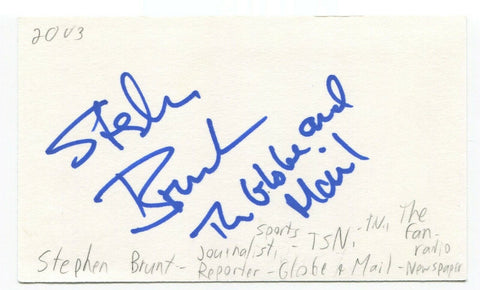 2003
Stephen
Brunt
The Globe and
Mail
Stephen Brunt - sports journalist, - TSN, - TN, The Fan - radio
Reporter - Globe & Mail - Newspaper